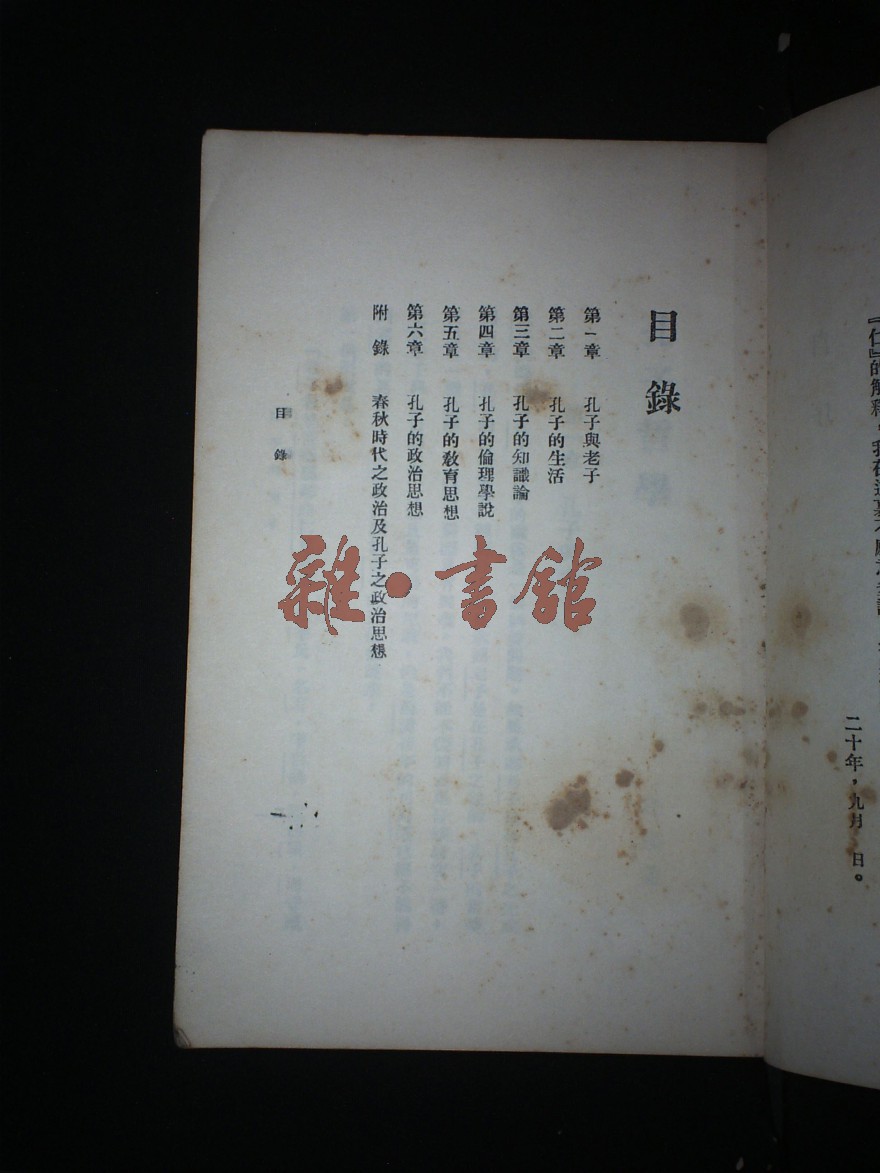 『仁』的解釋，我在這裏不
二十年，九月　日。
目錄
第一章　孔子與老子
第二章　孔子的生活
第三章　孔子的知識論
第四章　孔子的倫理學說
第五章　孔子的敎育思想
第六章　孔子的政治思想
附錄　春秋時代之政治及孔子之政治思想
目錄
一
雜·書館